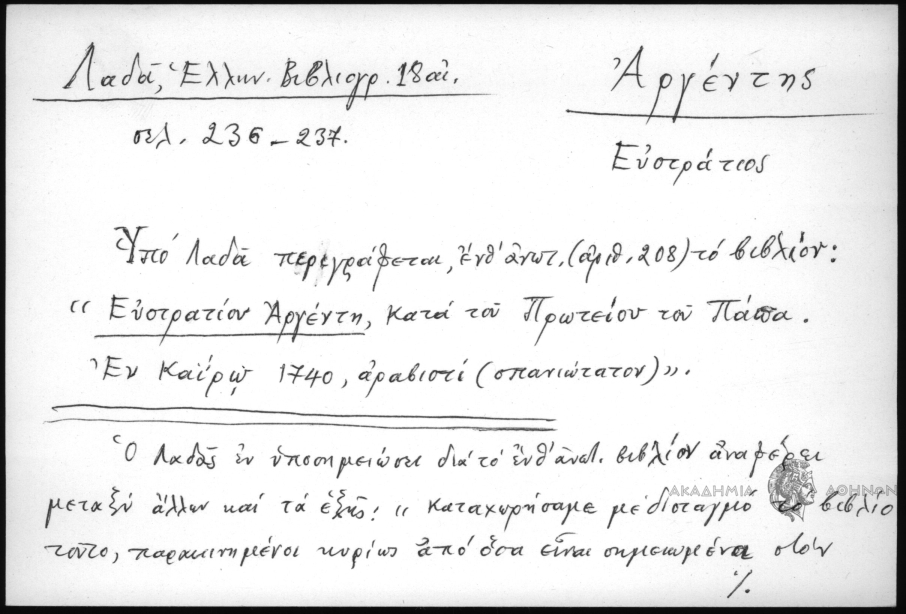 Λαδᾶ, Ἑλλην. Βιβλιογρ. 18 αἰ.
σελ. 236 - 237.
Ἀργέντης
Εὐστράτιος
Ὑπό Λαδᾶ περιγράφεται, ἐνθ' ἀνωτ. (ἀριθ. 208) τό βιβλίον:
"Εὐστρατίου Ἀργέντη, κατά τοῦ Πρωτείου τοῦ Πάπα.
Ἐν Καΐρῳ 1740, ἀραβιστί (σπανιώτατον)".
Ὁ Λαδᾶς ἐν ὑποσημειώσει διά τό ἐνθ' ἀνωτ. βιβλίον ἀναφέρει
μεταξύ ἄλλων καί τά ἑξῆς: "Καταχωρήσαμε μέ δισταγμό τό βιβλίο
τοῦτο, παρακινημένοι κυρίως ἀπό ὅσα εἶναι σημειωμένα στόν
./.
ΑΚΑΔΗΜΙΑ ΑΘΗΝΩΝ